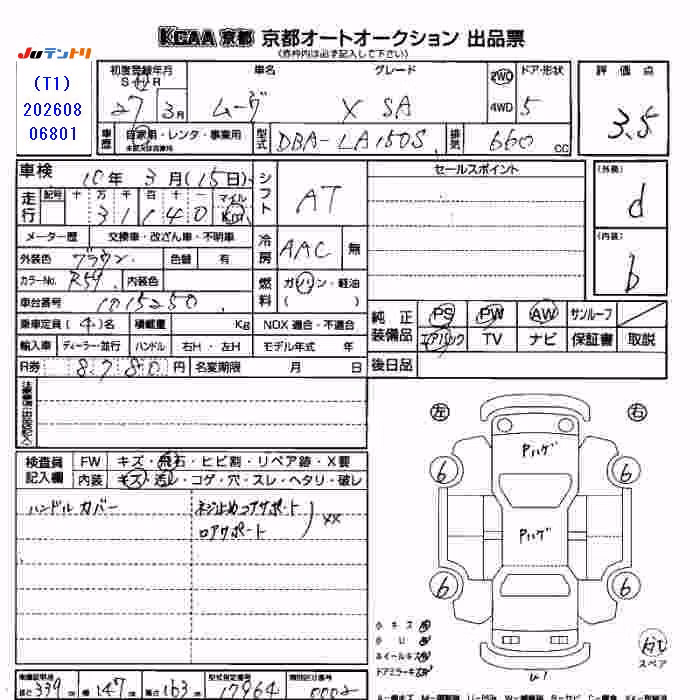 JUテントリ
KCAA 京都 京都オートオークション 出品票
(赤枠内は必ず記入して下さい)
(T1)
202608
06801
初度登録年月 車名 グレード ドア・形状 評価点
S H R
27 3月 ムーヴ X SA 2WD 4WD 5 3.5
車歴 自家用・レンタ・事業用 型式 DBA-LA150S 排気 660 cc
車検 10年 3月(15日) シフト AT セールスポイント (外装) d
走行 記号 十 万 千 百 十 一 マイル Km
3 1 1 4 0
メーター歴 交換車・改ざん車・不明車 冷房 AAC 無 (内装) b
外装色 ブラウン 色替 有
カラーNo. R59 内装色 燃料 ガソリン・軽油
( )
車台番号 1015250
乗車定員 (4)名 積載量 Kg NOX 適合・不適合 純正装備品 PS PW AW サンルーフ
輸入車 ディーラー・並行 ハンドル 右H・左H モデル年式 年 エアバック TV ナビ 保証書 取説
R券 8780 円 名変期限 月 日 後日品
検査員記入欄 FW キズ・飛石・ヒビ割・リペア跡・X要
内装 キズ・汚レ・コゲ・穴・スレ・ヘタリ・破レ
ハンドルカバー ネジ止めコアサポート
ロアサポート ) XX
左 右
Pハゲ
6 6
Pハゲ
6 6
小キズ
小U
ホイールキズ
ドアミラーキズ
スペア
U1
長さ 339 幅 147 高さ 163 型式指定番号 17964 類別区分番号 0002